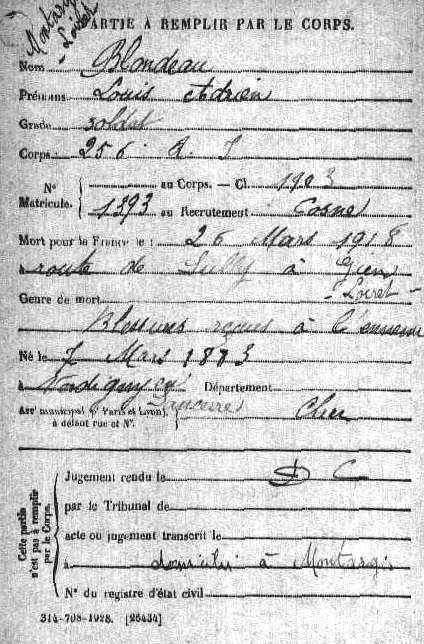 Montargis
- Loiret
PARTIE À REMPLIR PAR LE CORPS.
Nom Blondeau
Prénoms Louis Adrien
Grade soldat
Corps 256 R. I
N° au Corps. — Cl. 1903
Matricule. 1393 au Recrutement Cosne
Mort pour la France le : 26 Mars 1918
à route de Sully à Gien
- Loiret -
Genre de mort
Blessures reçues à l'ennemi
Né le 7 Mars 1883
à Département
Sancerre Cher
Arrt municipal (p Paris et Lyon),
à défaut rue et N°.
Cette partie
n'est pas à remplir
par le Corps.
Jugement rendu le D C
par le Tribunal de
acte ou jugement transcrit le
à domicilié à Montargis
N° du registre d'état civil
314-708-1928. [26434]